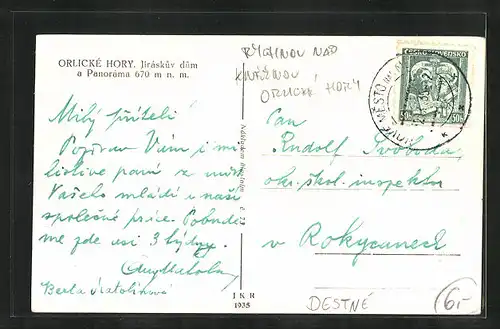 ORLICKÉ HORY. Jiráskův dům
a Panoráma 670 m n. m.
RYCHNOV NAD
KNĚŽNOU
ORLICKÉ HORY
ČESKOSLOVENSKO
50h 50h
NOVÉ MĚSTO
Milý příteli!
Pozdrav Vám i mi
lostivé paní z míst
Vašeho mládí a naší
společné práce. Pobude
me zde asi 3 týdny.
Berta Matolínová
Pan
Rudolf Svoboda
okr. škol. inspektor
v Rokycanech
Nákladem
č. 73
JKR
1935
DESTNÉ
6,-